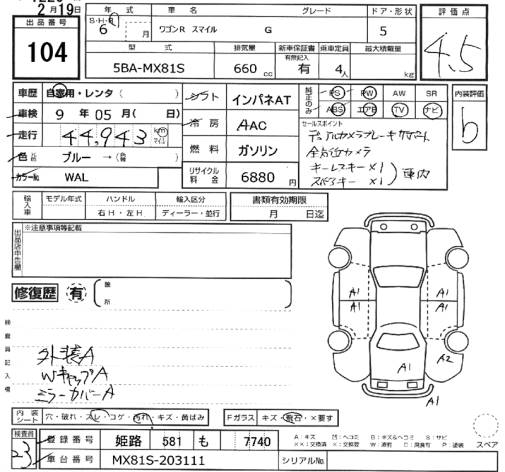 2月19日
出品番号
104
年式 車名 グレード ドア・形状
S・H・R 6 年 月 ワゴンR スマイル G 5
型式 排気量 新車保証書 有無記入 乗車定員 最大積載量
5BA-MX81S 660 cc 有 4人 kg
評価点
4.5
内装評価
b
車歴 自家用・レンタ( )
車検 9年 05月( 日)
走行 44,943 km マイル
色 ブルー →(
カラーNo. WAL
シフト インパネAT
冷房 AAC
燃料 ガソリン
リサイクル料金 6880 円
純正のみ
PS PW AW SR
ABS エアB TV ナビ
セールスポイント
デュアルカメラブレーキサポート
全方位カメラ
キーレスキー×1
スペアキー×1
車内
輸入車 モデル年式 ハンドル 輸入区分
年 右H・左H ディーラー・並行
書類有効期限
月 日迄
出品店申告欄
※注意事項等記載
修復歴 有
箇所
検査員記入欄
外装A
WキャップA
ミラーカバーA
A1
A1 A1
A1 A2
A1
A1
内装シート 穴・破れ・スレ・コゲ・汚れ・キズ・黄ばみ
Fガラス キズ・飛石・×要す
A:キズ U:ヘコミ B:キズ&ヘコミ S:サビ
XX:交換済 X:交換要 W:波打 C:腐食有 P:塗装
スペア
検査員
23
登録番号 姫路 581 も 7740
車台番号 MX81S-203111
シリアルNo.